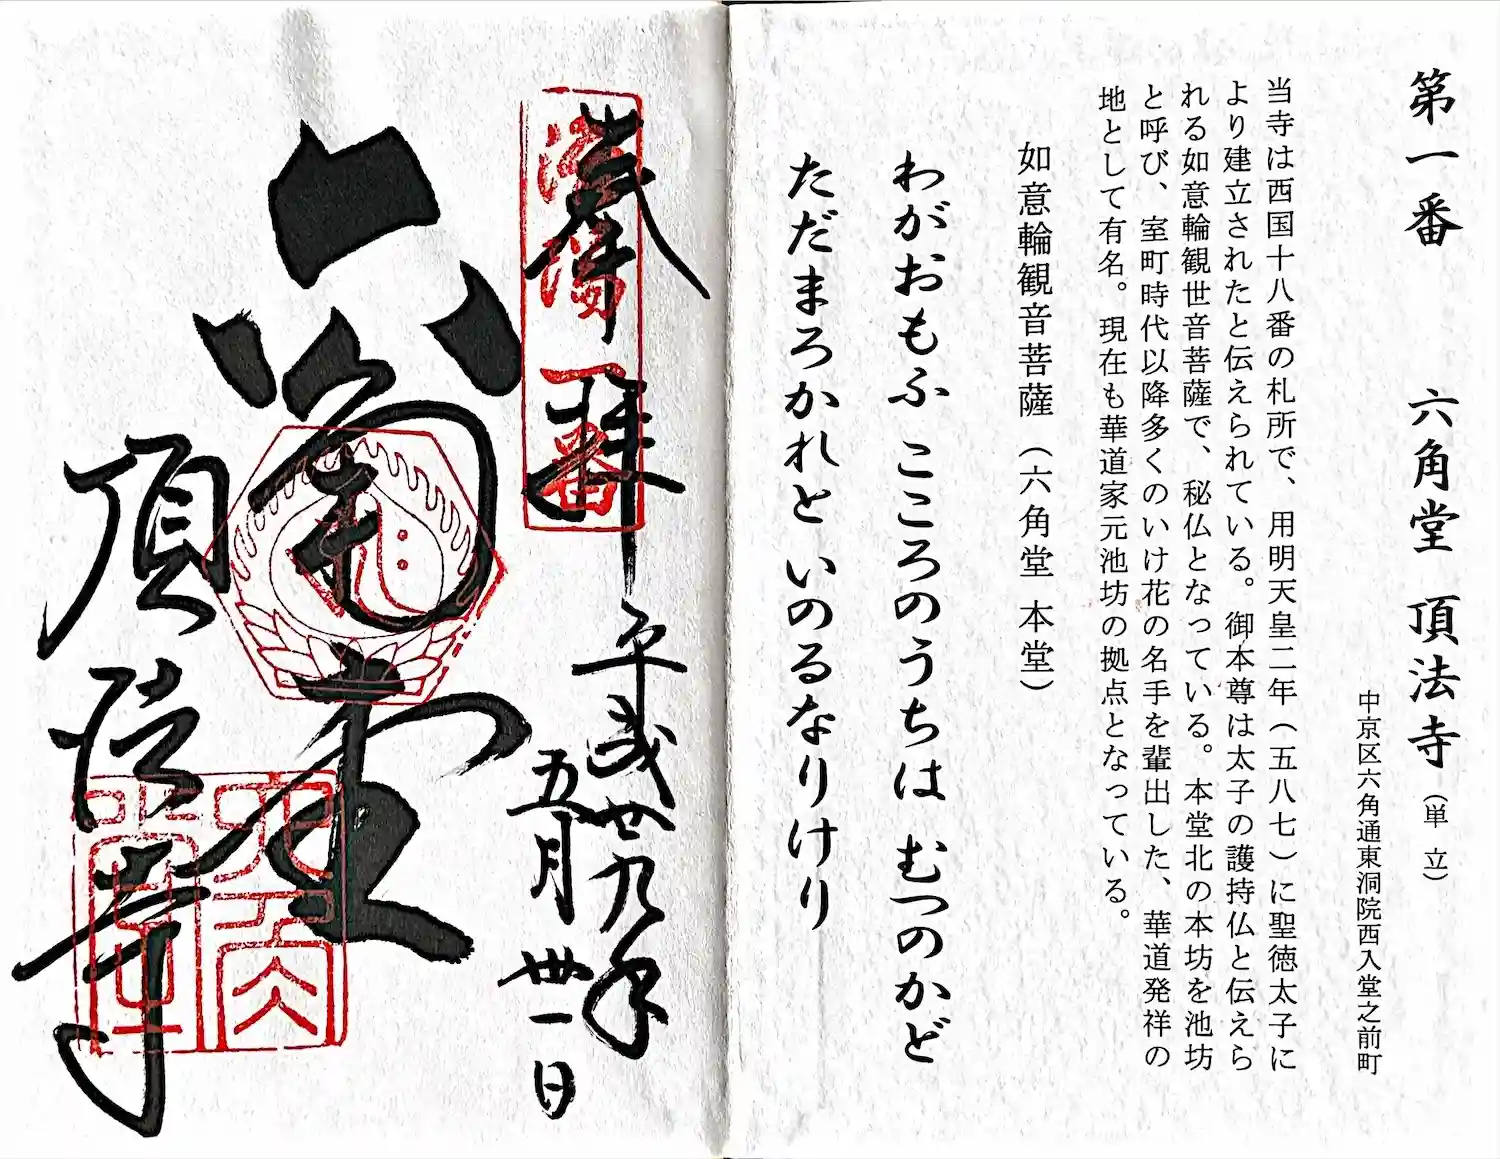 第一番 六角堂 頂法寺(単立)
中京区六角通東洞院西入堂之前町
当寺は西国十八番の札所で、用明天皇二年(五八七)に聖徳太子に
より建立されたと伝えられている。御本尊は太子の護持仏と伝えら
れる如意輪観世音菩薩で、秘仏となっている。本堂北の本坊を池坊
と呼び、室町時代以降多くのいけ花の名手を輩出した、華道発祥の
地として有名。現在も華道家元池坊の拠点となっている。
如意輪観音菩薩(六角堂 本堂)
わがおもふ こころのうちは むつのかど
ただまろかれと いのるなりけり
奉拝
洛陽一番
平成廿九年
五月卅一日
六角堂
頂法寺
六角堂印